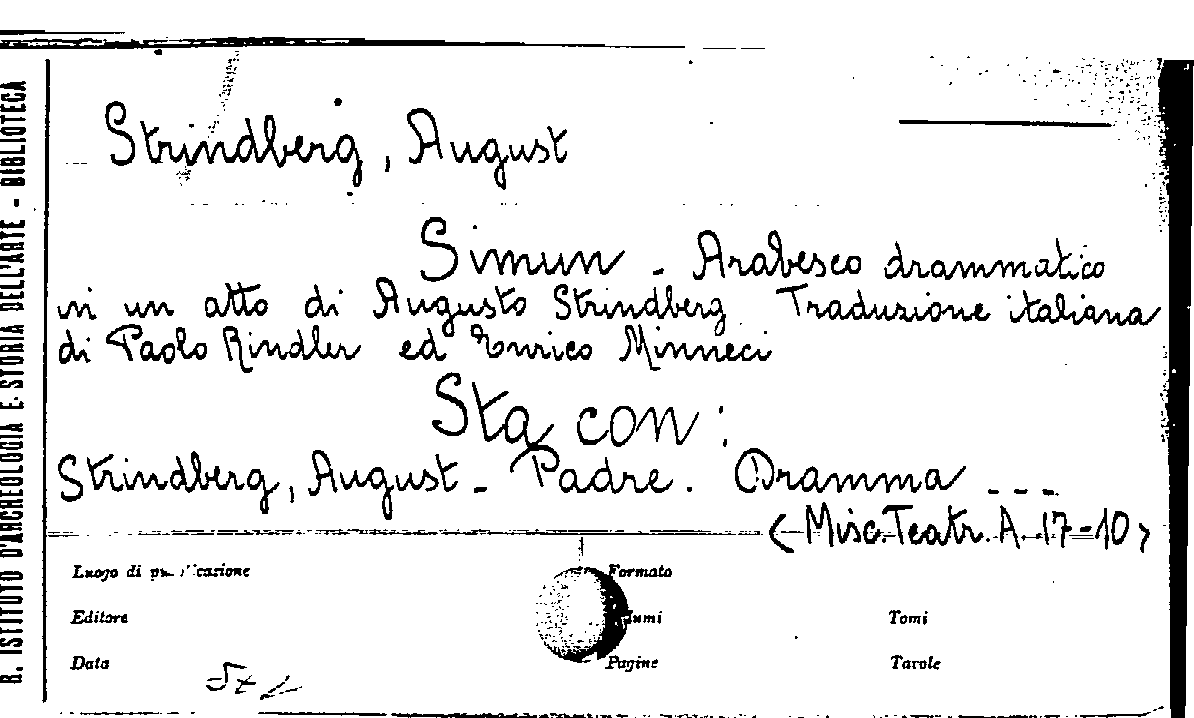 R. ISTITUTO D'ARCHEOLOGIA E STORIA DELL'ARTE - BIBLIOTECA
Strindberg, August
Simun - Arabesco drammatico
in un atto di Augusto Strindberg Traduzione italiana
di Paolo Rindler ed Enrico Minneci
Sta con:
Strindberg, August - Padre. Dramma ---
<Misc.Teatr.A.17-10>
Luogo di pubblicazione Formato
Editore Tomi
Data Pagine Tavole